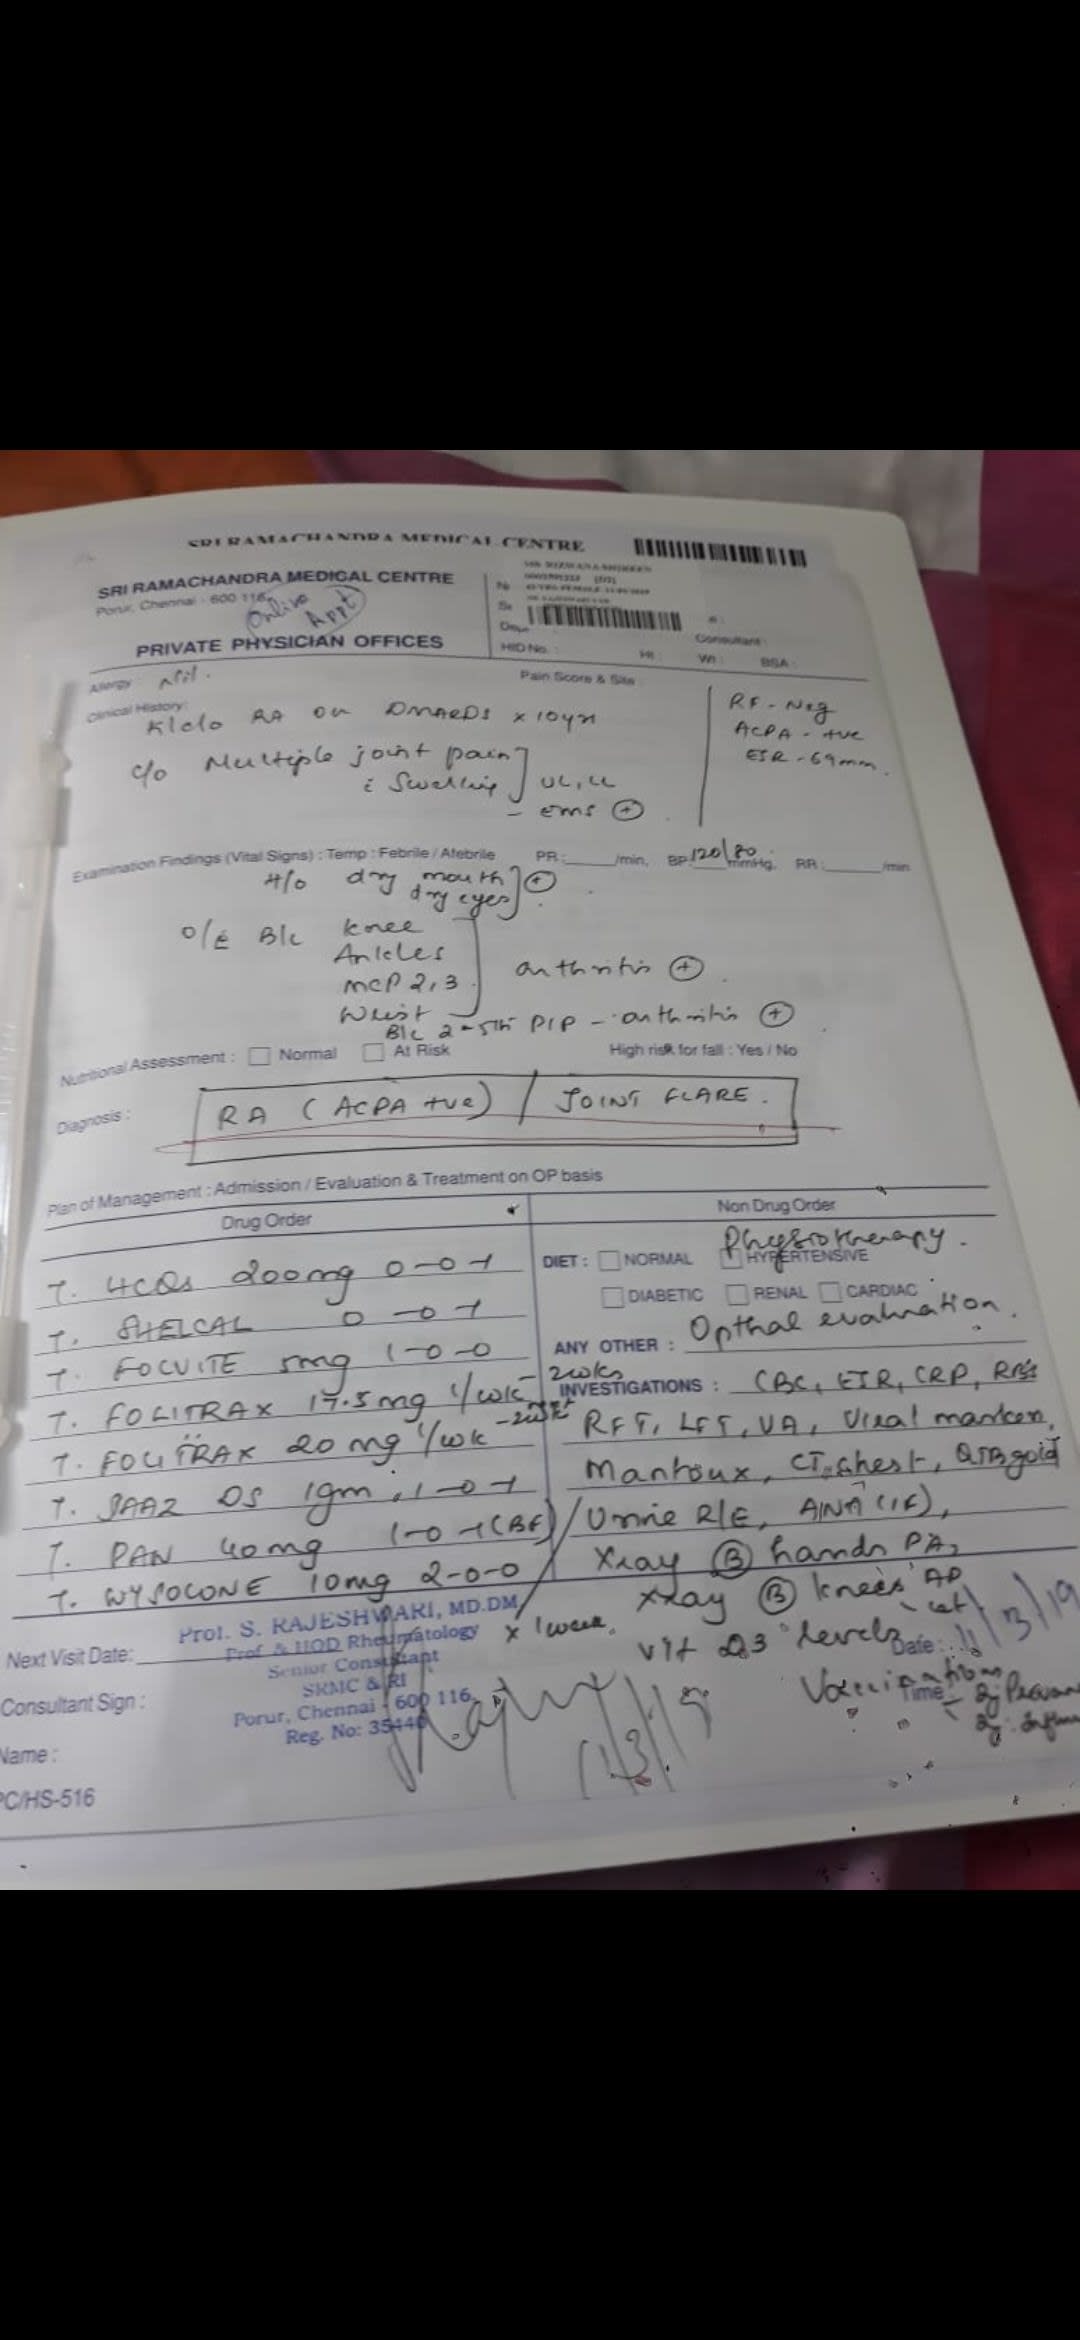 SRI RAMACHANDRA MEDICAL CENTRE
SRI RAMACHANDRA MEDICAL CENTRE
Porur, Chennai - 600 116
Online Appt
PRIVATE PHYSICIAN OFFICES
HID No. :
Ht :
Wt :
BSA :
Consultant :
Allergy Nil.
Pain Score & Site
Clinical History:
K/c/o RA on DMARDS x 10yr
RF - Neg
ACPA - +ve
ESR - 69mm.
c/o Multiple joint pain
c̄ Swelling UL, LL
- EMS (+)
Examination Findings (Vital Signs) : Temp : Febrile / Afebrile PR: /min, BP: 120/80 mmHg, RR: /min
H/o dry mouth (+)
dry eyes
O/E B/L Knee
Ankles
MCP 2,3
Wrist
arthritis (+)
B/L 2-5th PIP - arthritis (+)
Nutritional Assessment : Normal At Risk High risk for fall : Yes / No
Diagnosis : RA (ACPA +ve) / JOINT FLARE.
Plan of Management : Admission / Evaluation & Treatment on OP basis
Drug Order
Non Drug Order
T. HCQs 200mg 0-0-1
T. SHELCAL 0-0-1
T. FOLVITE 5mg 1-0-0
T. FOLITRAX 17.5mg 1/wk - 2wks
T. FOLITRAX 20mg 1/wk
T. SAAZ DS 1gm 1-0-1
T. PAN 40mg 1-0-1 (BF)
T. WYSOLONE 10mg 2-0-0
x 1week.
Physiotherapy.
DIET : NORMAL HYPERTENSIVE
DIABETIC RENAL CARDIAC
ANY OTHER : Opthal evaluation.
INVESTIGATIONS : CBC, ESR, CRP,
RFT, LFT, UA, Viral marker,
Mantoux, CT chest, QTB gold
Urine R/E, ANA (IF),
Xray (B) hands PA,
Xray (B) knees AP
Vit D3 levels
Vaccination
Next Visit Date:
Prof. S. RAJESHWARI, MD.DM
Prof & HOD Rheumatology
Senior Consultant
SRMC & RI
Porur, Chennai - 600 116.
Reg. No: 35440
Date : 11/3/19
Time
Consultant Sign :
11/3/19
Name :
PC/HS-516